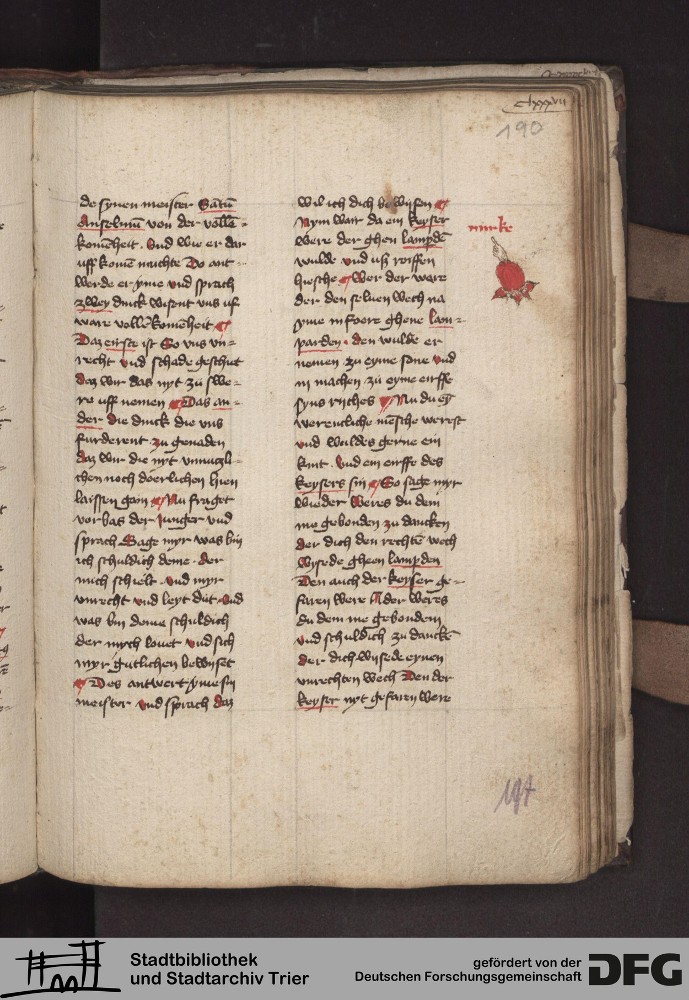 clxxxvii
190
de synen meister Sātū
Anselmū von der vollē=
komēheit. Vnd wie er dar
uff komē mūchte Do ant=
werde er yme vnd sprach
zwey dinck wisent vns uf
ware vollēkomēheit
Daz eirste ist So vns vn=
recht vnd schade geschut
daz wir das nyt zu swe=
re uff nemen Das an=
der die dinck die vns
furderent zu genaden
daz wir die nyt vnnuczli=
chen noch doerlichen hien
laissen gain Nu fraget
vorbas der Junger vnd
sprach Sage myr was bin
ich schuldich deme der
mich schielt vnd myr
vnrecht vnd leyt dūt Vnd
was bin deme schuldich
der mych louet vnd sich
myr gutlichen bewyset
Des antwert yme sin
meister vnd sprach daz
wil ich dich bewysen
Nym war da ein keyser
were der ghen lampdē
wulde vnd uß reissen
hiesche Wer der ware
der den seluen wech na
yme in foere ghene lam=
parden. den wulde er
nemen zu eyme sone vnd
in machen zu eyme eirffe
syns riches Nu du eȳ
werentliche mēsche werest
vnd wuldes gerne ein
kint. vnd ein eirffe des
keysers sin So sage myr
wieder weres du dem
me gebonden zu dancken
der dich den rechtē wech
wysede gheen lampden
Den auch der keyser ge=
faren were Ader weres
du dem me gebonden
vnd schuldich zu danckē
der dich wysede eynen
vnrechten wech Den der
keyser nyt gefaren were
mirke
Stadtbibliothek
und Stadtarchiv Trier
gefördert von der
Deutschen Forschungsgemeinschaft
DFG